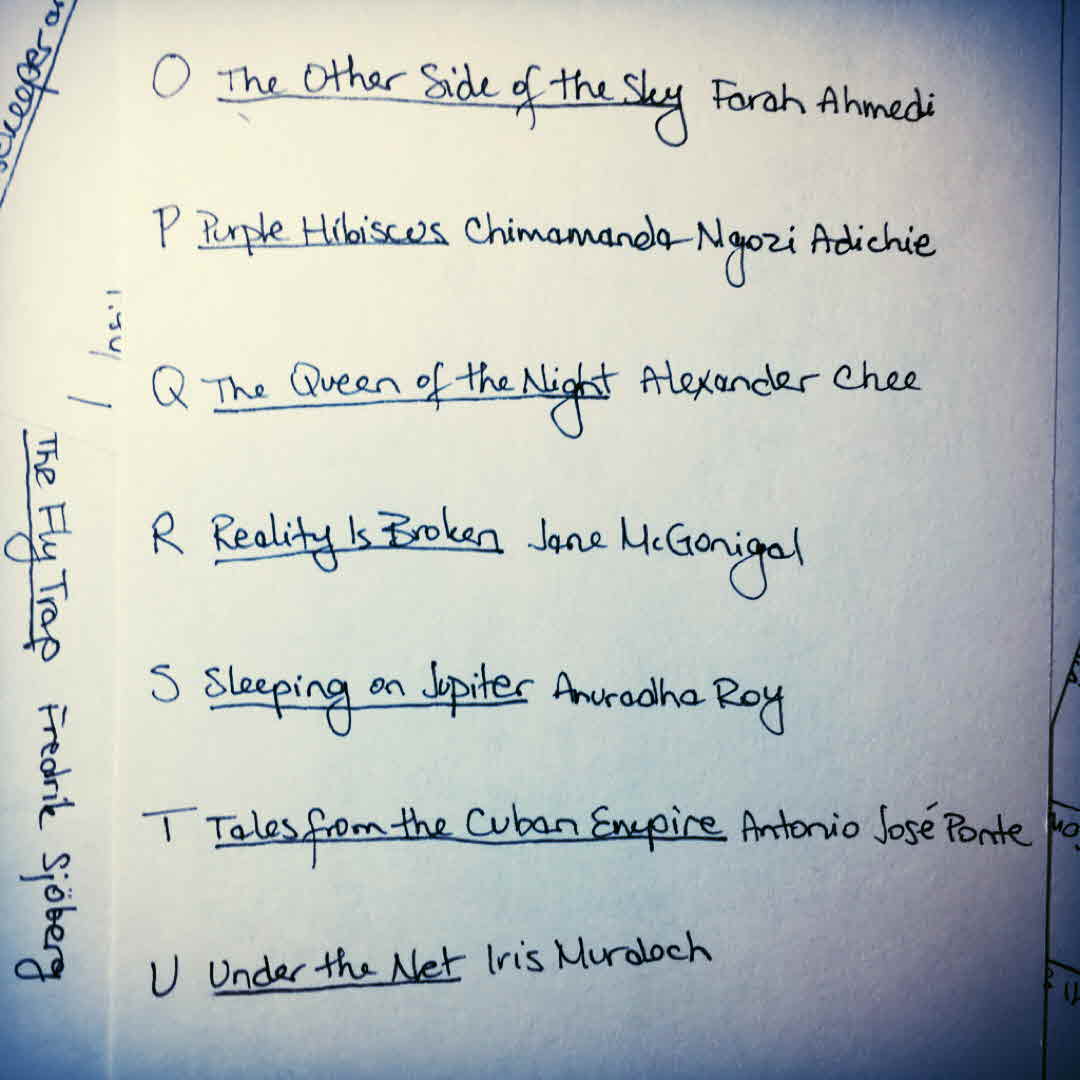 O The Other Side of the Sky Farah Ahmedi
P Purple Hibiscus Chimamanda Ngozi Adichie
Q The Queen of the Night Alexander Chee
R Reality Is Broken Jane McGonigal
S Sleeping on Jupiter Anuradha Roy
T Tales from the Cuban Empire Antonio José Ponte
U Under the Net Iris Murdoch
The Fly Trap Fredrik Sjöberg